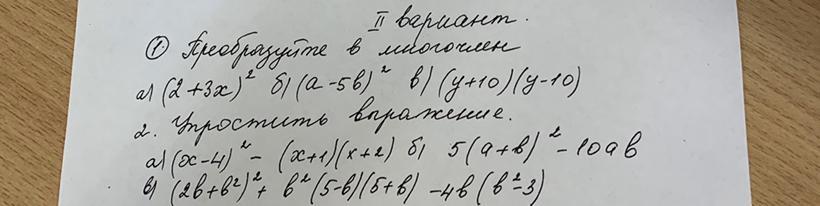 II вариант.
① Преобразуйте в многочлен
а) (2+3x)² б) (a-5b)² в) (y+10)(y-10)
2. Упростить выражение.
а) (x-4)² - (x+1)(x+2) б) 5(a+b)² - 10ab
в) (2b+b²)² + b²(5-b)(5+b) - 4b(b²-3)